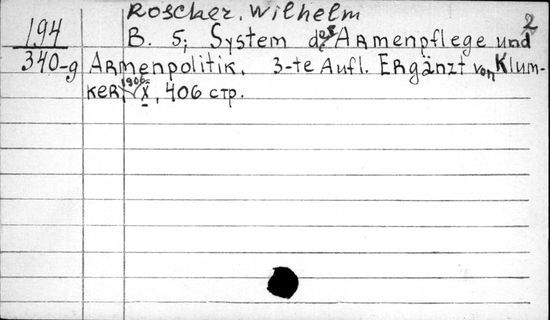 Roscher, Wilhelm
2
194 B. 5; System der Armenpflege und
340-g Armenpolitik. 3-te Aufl. Ergänzt von Klum-
ker, 1906. X, 406 стр.